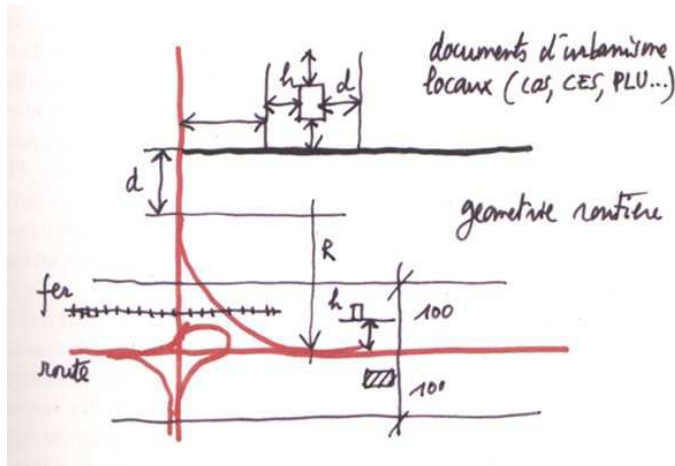 documents d'urbanisme
locaux (COS, CES, PLU...)
h
d
d
géométrie routière
R
fer
h
100
route
100